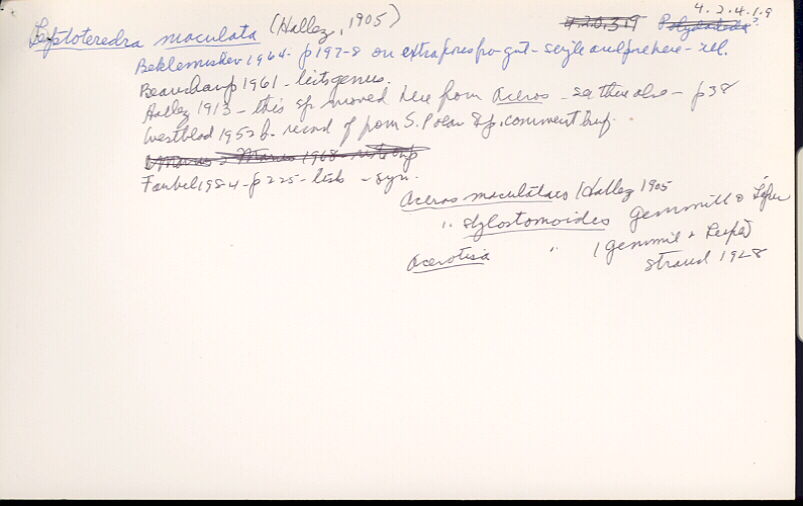 4.2.4.1.9
Leptoteredra maculata (Hallez, 1905) 4.20.3.9 Polycladida?
Beklemishev 1964 - p197-8 on extra pores fro gut - single and fore here - ill.
Beauchamp 1961 - lists genus.
Hallez 1913 - this sp moved here from Aceros - see there also - p38
Westblad 1952 b - record of from S. Polar Sp, comment brf.
Marcus & Marcus 1968
Faubel 1984 - p225 - lists - syn.
Aceros maculatus (Hallez 1905
" stylostomoides Gemmill &
Acerotisa " (Gemmill & Leiper)
Strand 1928